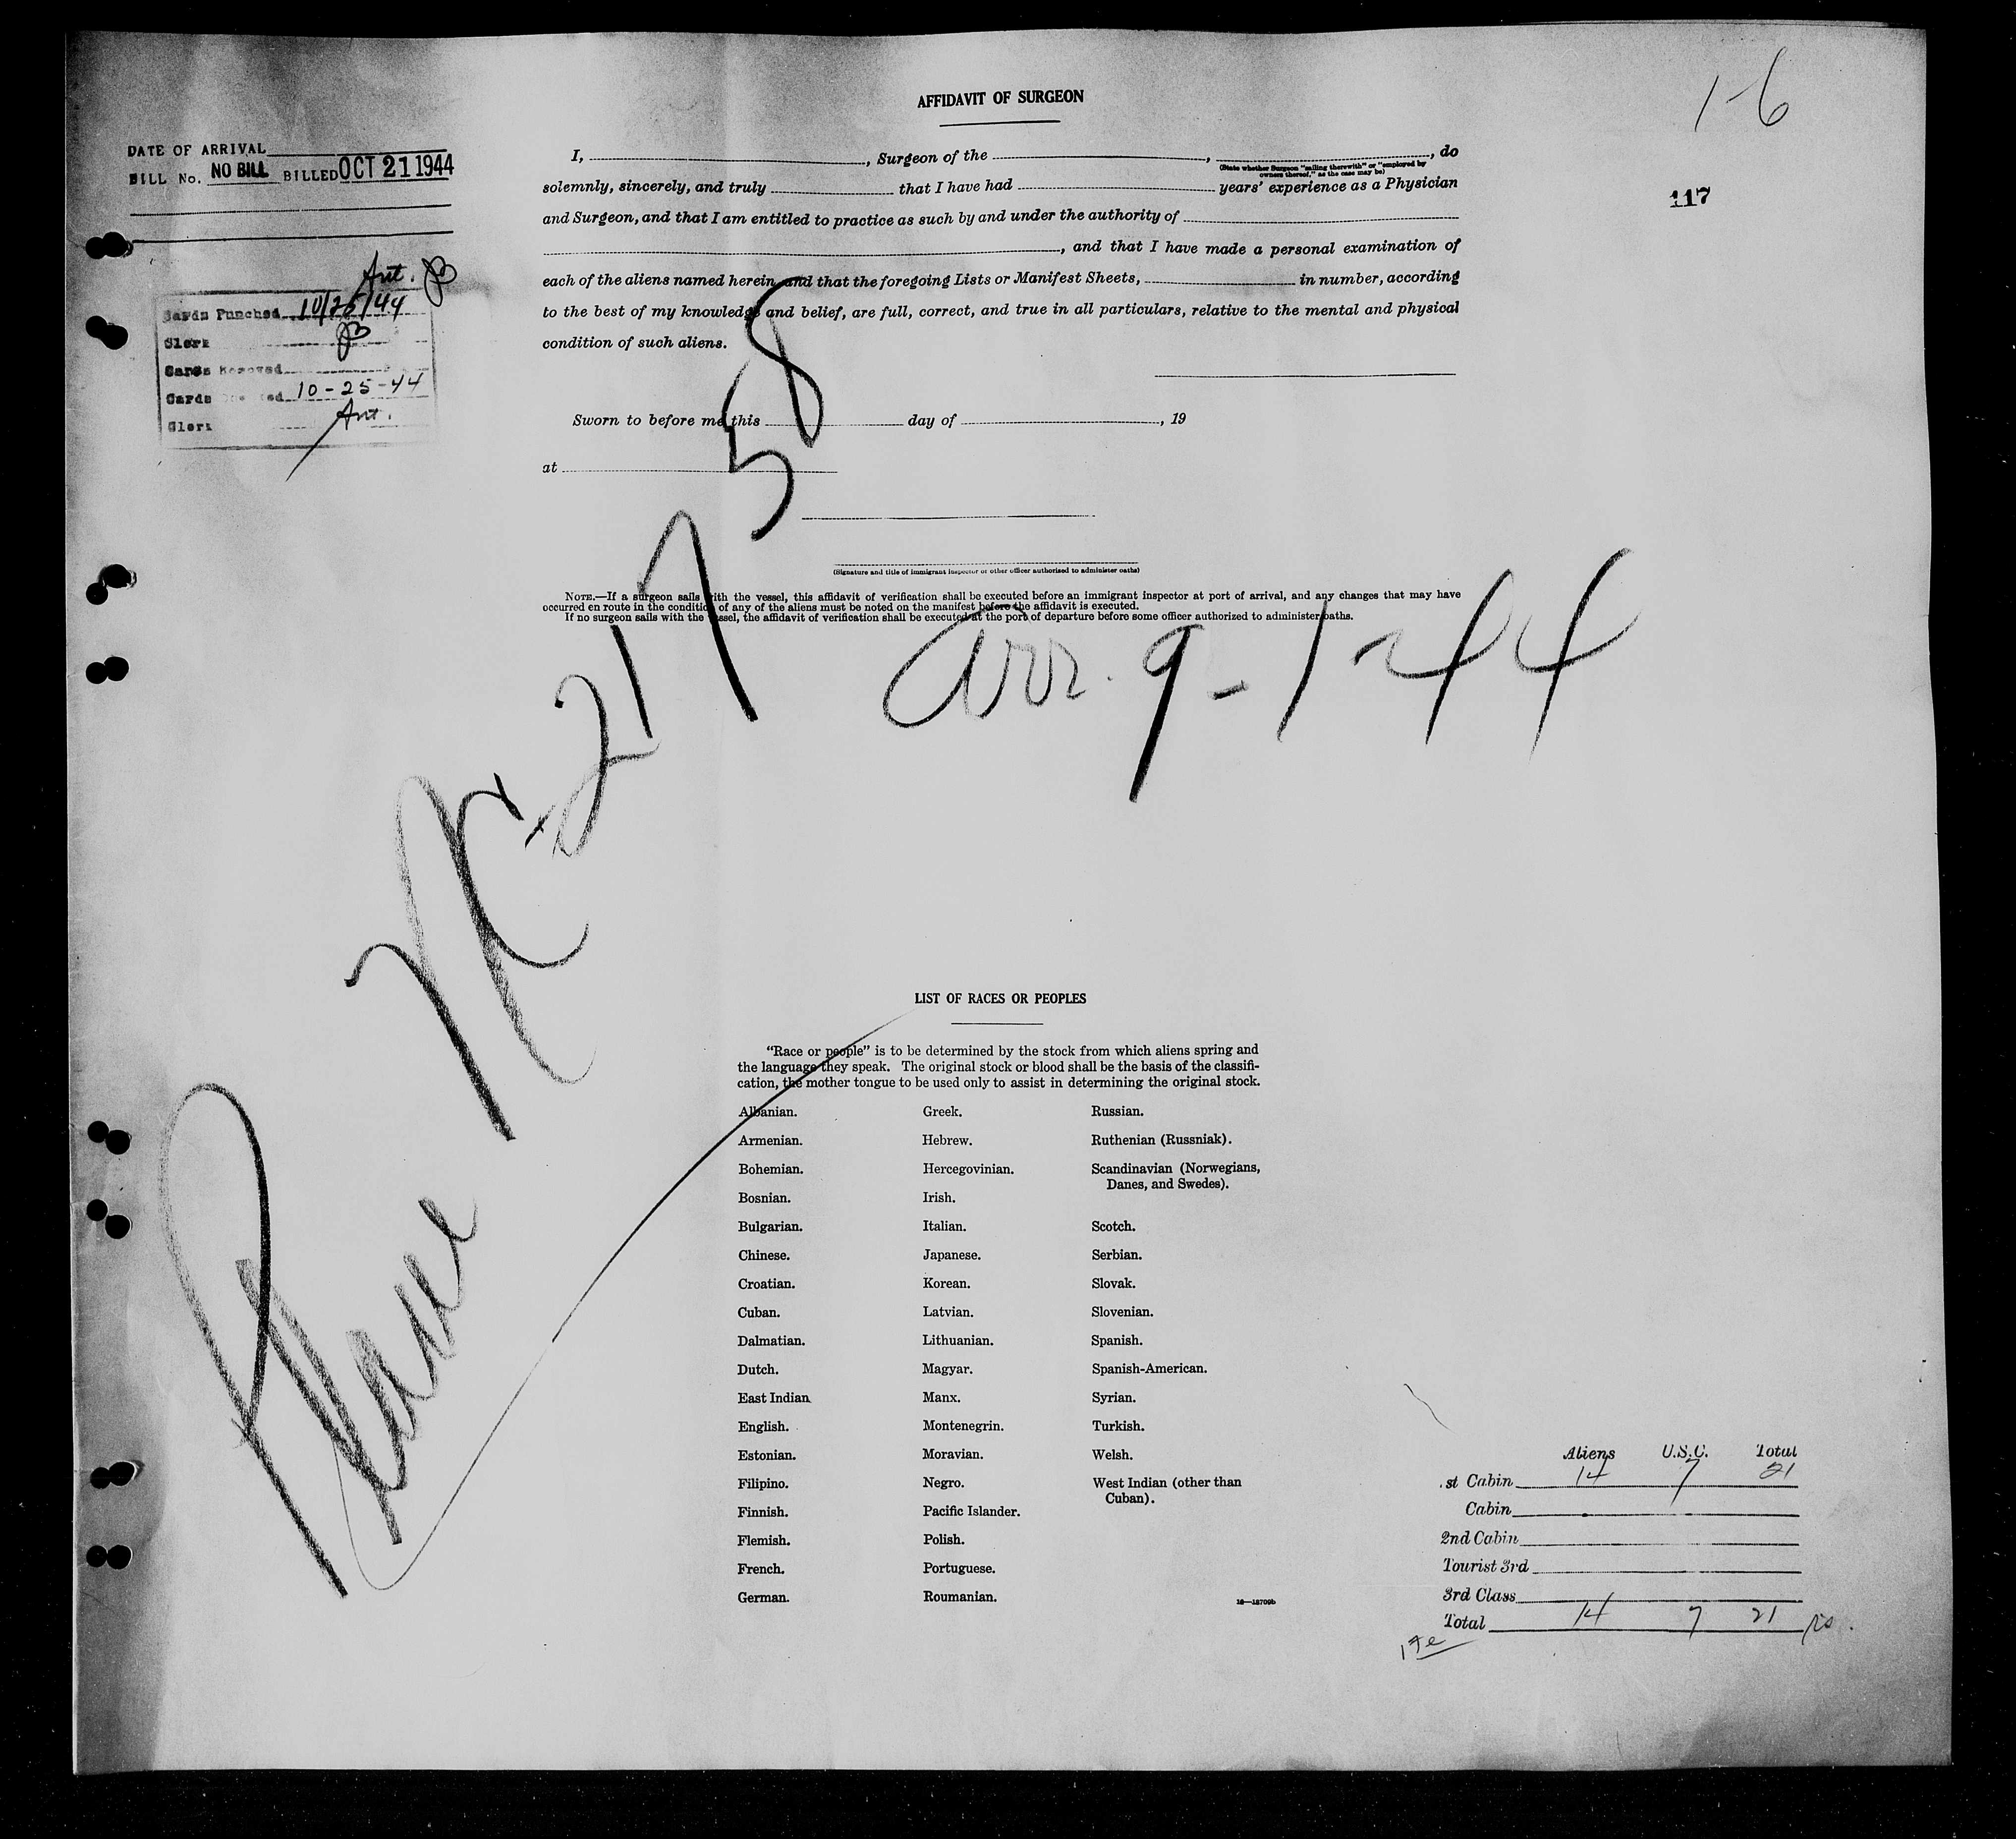 AFFIDAVIT OF SURGEON
1-6
117
DATE OF ARRIVAL
BILL No. NO BILL BILLED OCT 21 1944
Ant.
Cards Punched 10/25/44
Clerk
Cards Removed
Cards 10-25-44
Clerk Ant.
I, , Surgeon of the , , do
(State whether Surgeon "sailing therewith" or "employed by
owners thereof," as the case may be)
solemnly, sincerely, and truly that I have had years' experience as a Physician
and Surgeon, and that I am entitled to practice as such by and under the authority of
, and that I have made a personal examination of
each of the aliens named herein and that the foregoing Lists or Manifest Sheets, in number, according
to the best of my knowledge and belief, are full, correct, and true in all particulars, relative to the mental and physical
condition of such aliens.
Sworn to before me this day of , 19
at
(Signature and title of immigrant inspector or other officer authorized to administer oaths)
NOTE.—If a surgeon sails with the vessel, this affidavit of verification shall be executed before an immigrant inspector at port of arrival, and any changes that may have
occurred en route in the condition of any of the aliens must be noted on the manifest before the affidavit is executed.
If no surgeon sails with the vessel, the affidavit of verification shall be executed at the port of departure before some officer authorized to administer oaths.
Plane NC-21758
arr. 9-1-44
LIST OF RACES OR PEOPLES
"Race or people" is to be determined by the stock from which aliens spring and
the language they speak. The original stock or blood shall be the basis of the classifi-
cation, the mother tongue to be used only to assist in determining the original stock.
Albanian. Greek. Russian.
Armenian. Hebrew. Ruthenian (Russniak).
Bohemian. Hercegovinian. Scandinavian (Norwegians,
Danes, and Swedes).
Bosnian. Irish.
Bulgarian. Italian. Scotch.
Chinese. Japanese. Serbian.
Croatian. Korean. Slovak.
Cuban. Latvian. Slovenian.
Dalmatian. Lithuanian. Spanish.
Dutch. Magyar. Spanish-American.
East Indian Manx. Syrian.
English. Montenegrin. Turkish.
Estonian. Moravian. Welsh.
Filipino. Negro. West Indian (other than
Cuban).
Finnish. Pacific Islander.
Flemish. Polish.
French. Portuguese.
German. Roumanian.
16—18709b
Aliens U.S.C. Total
st Cabin 14 7 21
Cabin
2nd Cabin
Tourist 3rd
3rd Class
Total 14 7 21